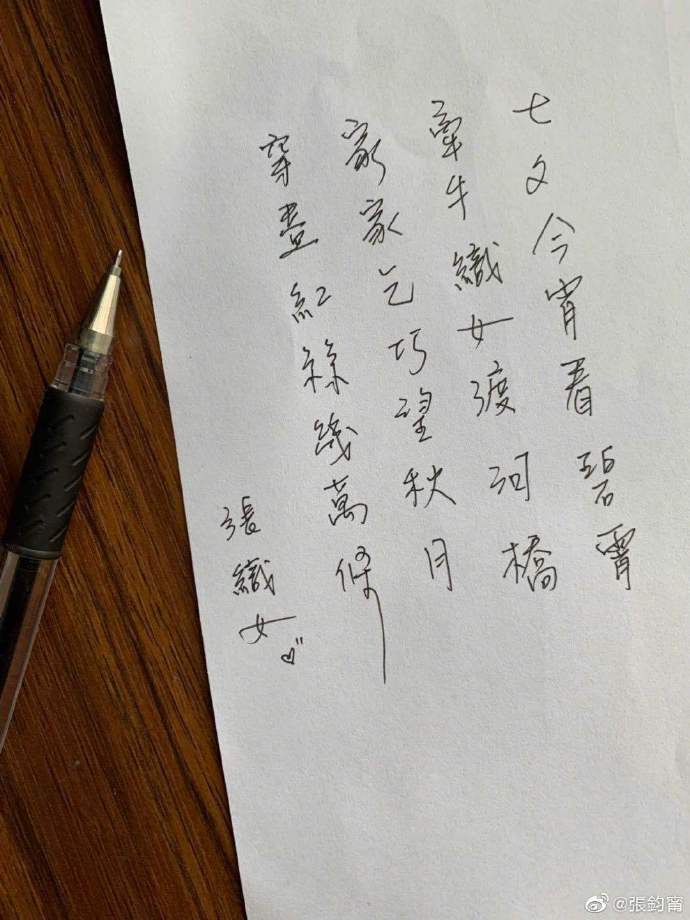 七夕今宵看碧霄
牽牛織女渡河橋
家家乞巧望秋月
穿盡紅絲幾萬條
張織女♡
@張鈞甯